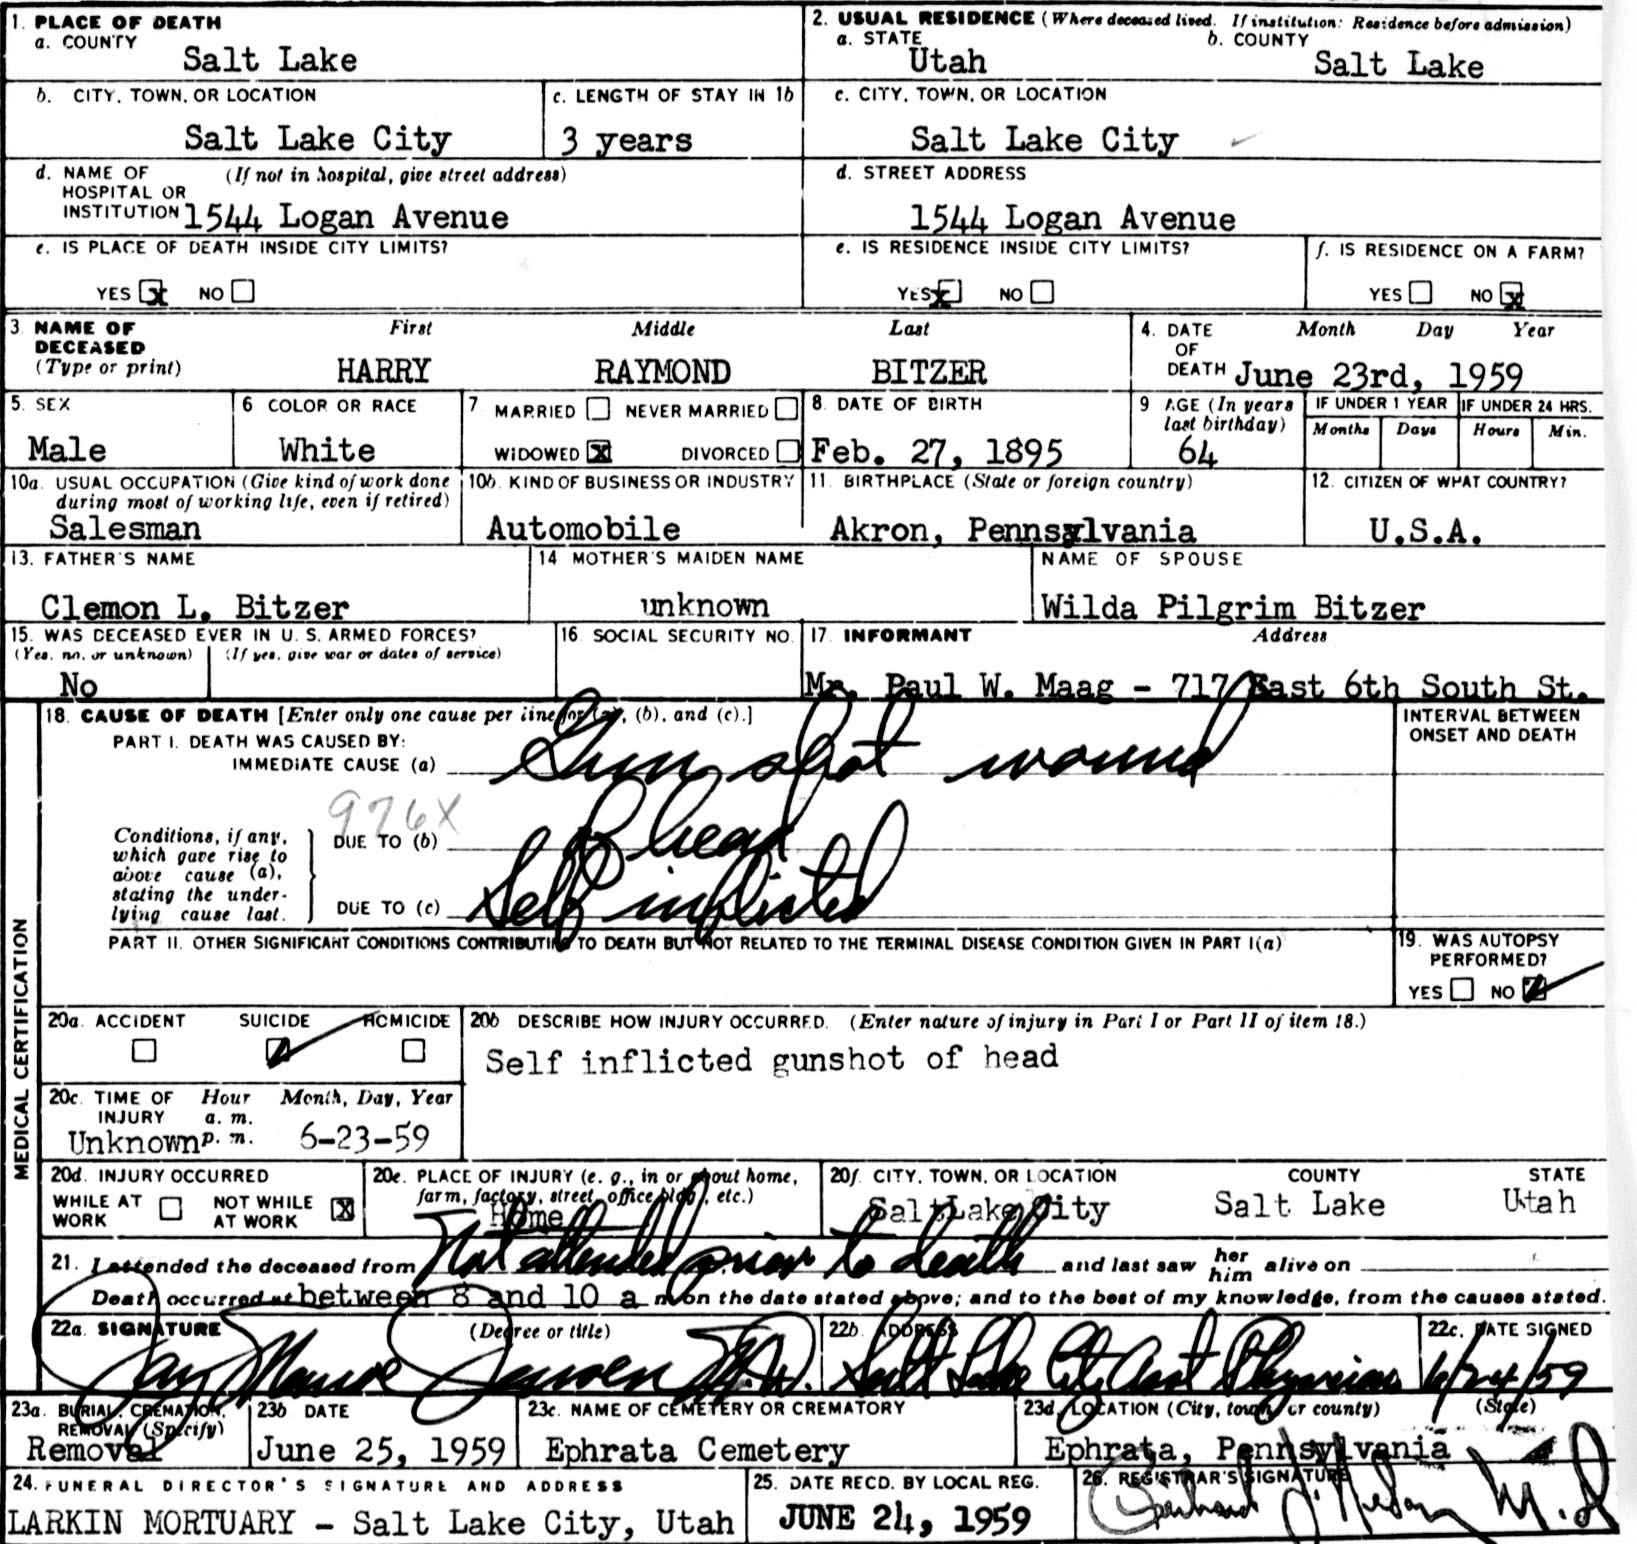 1. PLACE OF DEATH
a. COUNTY
Salt Lake
2. USUAL RESIDENCE (Where deceased lived. If institution: Residence before admission)
a. STATE b. COUNTY
Utah Salt Lake
b. CITY, TOWN, OR LOCATION
Salt Lake City
c. LENGTH OF STAY IN 1b
3 years
c. CITY, TOWN, OR LOCATION
Salt Lake City
d. NAME OF (If not in hospital, give street address)
HOSPITAL OR
INSTITUTION 1544 Logan Avenue
d. STREET ADDRESS
1544 Logan Avenue
e. IS PLACE OF DEATH INSIDE CITY LIMITS?
YES x NO
e. IS RESIDENCE INSIDE CITY LIMITS?
YES x NO
f. IS RESIDENCE ON A FARM?
YES NO x
3. NAME OF First Middle Last
DECEASED
(Type or print) HARRY RAYMOND BITZER
4. DATE Month Day Year
OF
DEATH June 23rd, 1959
5. SEX
Male
6 COLOR OR RACE
White
7 MARRIED NEVER MARRIED
WIDOWED x DIVORCED
8. DATE OF BIRTH
Feb. 27, 1895
9 AGE (In years
last birthday)
64
IF UNDER 1 YEAR IF UNDER 24 HRS.
Months Days Hours Min.
10a. USUAL OCCUPATION (Give kind of work done
during most of working life, even if retired)
Salesman
10b. KIND OF BUSINESS OR INDUSTRY
Automobile
11. BIRTHPLACE (State or foreign country)
Akron, Pennsylvania
12. CITIZEN OF WHAT COUNTRY?
U.S.A.
13. FATHER'S NAME
Clemon L. Bitzer
14 MOTHER'S MAIDEN NAME
unknown
NAME OF SPOUSE
Wilda Pilgrim Bitzer
15. WAS DECEASED EVER IN U. S. ARMED FORCES?
(Yes, no, or unknown) (If yes, give war or dates of service)
No
16. SOCIAL SECURITY NO.
17. INFORMANT Address
Mr. Paul W. Maag - 717 East 6th South St.
MEDICAL CERTIFICATION
18. CAUSE OF DEATH [Enter only one cause per line for (a), (b), and (c).]
PART I. DEATH WAS CAUSED BY:
IMMEDIATE CAUSE (a) Gun shot wound
976X
Conditions, if any,
which gave rise to
above cause (a),
stating the under-
lying cause last.
DUE TO (b) head
DUE TO (c) Self inflicted
INTERVAL BETWEEN
ONSET AND DEATH
PART II. OTHER SIGNIFICANT CONDITIONS CONTRIBUTING TO DEATH BUT NOT RELATED TO THE TERMINAL DISEASE CONDITION GIVEN IN PART I(a)
19. WAS AUTOPSY
PERFORMED?
YES NO
20a. ACCIDENT SUICIDE HOMICIDE
20b DESCRIBE HOW INJURY OCCURRED. (Enter nature of injury in Part I or Part II of item 18.)
Self inflicted gunshot of head
20c. TIME OF Hour Month, Day, Year
INJURY a. m.
Unknown p. m. 6-23-59
20d. INJURY OCCURRED
WHILE AT NOT WHILE
WORK AT WORK X
20e. PLACE OF INJURY (e. g., in or about home,
farm, factory, street, office bldg., etc.)
Home
20f. CITY, TOWN, OR LOCATION COUNTY STATE
Salt Lake City Salt Lake Utah
21. I attended the deceased from Not attended prior to death and last saw her him alive on
Death occurred at between 8 and 10 a m on the date stated above; and to the best of my knowledge, from the causes stated.
22a. SIGNATURE (Degree or title)
Jensen M.D.
22b. ADDRESS
Salt Lake City Asst Physician
22c. DATE SIGNED
6/24/59
23a. BURIAL, CREMATION,
REMOVAL (Specify)
Removal
23b DATE
June 25, 1959
23c. NAME OF CEMETERY OR CREMATORY
Ephrata Cemetery
23d. LOCATION (City, town, or county) (State)
Ephrata, Pennsylvania
24. FUNERAL DIRECTOR'S SIGNATURE AND ADDRESS
LARKIN MORTUARY - Salt Lake City, Utah
25. DATE RECD. BY LOCAL REG.
JUNE 24, 1959
26. REGISTRAR'S SIGNATURE
M.D